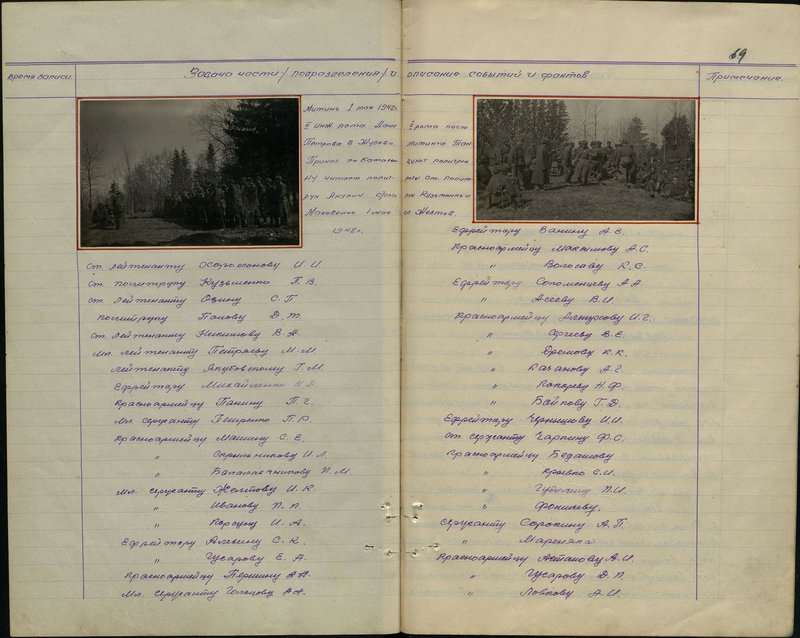 69
Время записи
Задача части /подразделения/ и описание событий и фактов
Примечание
Митинг 1 мая 1942г.
II инж. рота. Дача
Петрова в
Приказ по баталь-
ну читает полит-
рук
1 мая
1942г.
I рота после
митинга. Тан-
цуют политрук
роты ст. полит-
рук Кузьменко и
ст. лейтенанту И.И.
ст. политруку Кузьменко П.В.
ст. лейтенанту С.П.
политруку Панову Д.Т.
ст. лейтенанту В.А.
мл. лейтенанту М.М.
лейтенанту Якубовскому Г.М.
Ефрейтору Михайленко
Красноармейцу Панину П.Г.
мл. сержанту Петренко П.Р.
Красноармейцу Машину С.Е.
" Скрыльникову И.Л.
" Балалаечникову П.М.
мл. сержанту Желтову И.К.
" Иванову П.П.
" Корсуну И.А.
Ефрейтору Алехину С.К.
" Гусарову Е.А.
Красноармейцу Першину А.А.
мл. сержанту А.А.
Ефрейтору Ванину А.В.
Красноармейцу Максимову А.С.
" Волосаву К.С.
Ефрейтору Соломенцеву А.А.
" Асееву В.И.
Красноармейцу И.Г.
" Сергееву В.Е.
" Еремову К.К.
" Казанову А.Г.
" Н.Ф.
" Байкову Г.Д.
Ефрейтору Чернышову И.И.
ст. сержанту Чаркину Ф.С.
Красноармейцу Бедашову
" Кривко С.И.
" П.И.
" Фомичеву.
сержанту Сорокину А.П.
" Мареняка
Красноармейцу Астахову А.И.
" Гусарову Д.П.
" Ловкову А.И.